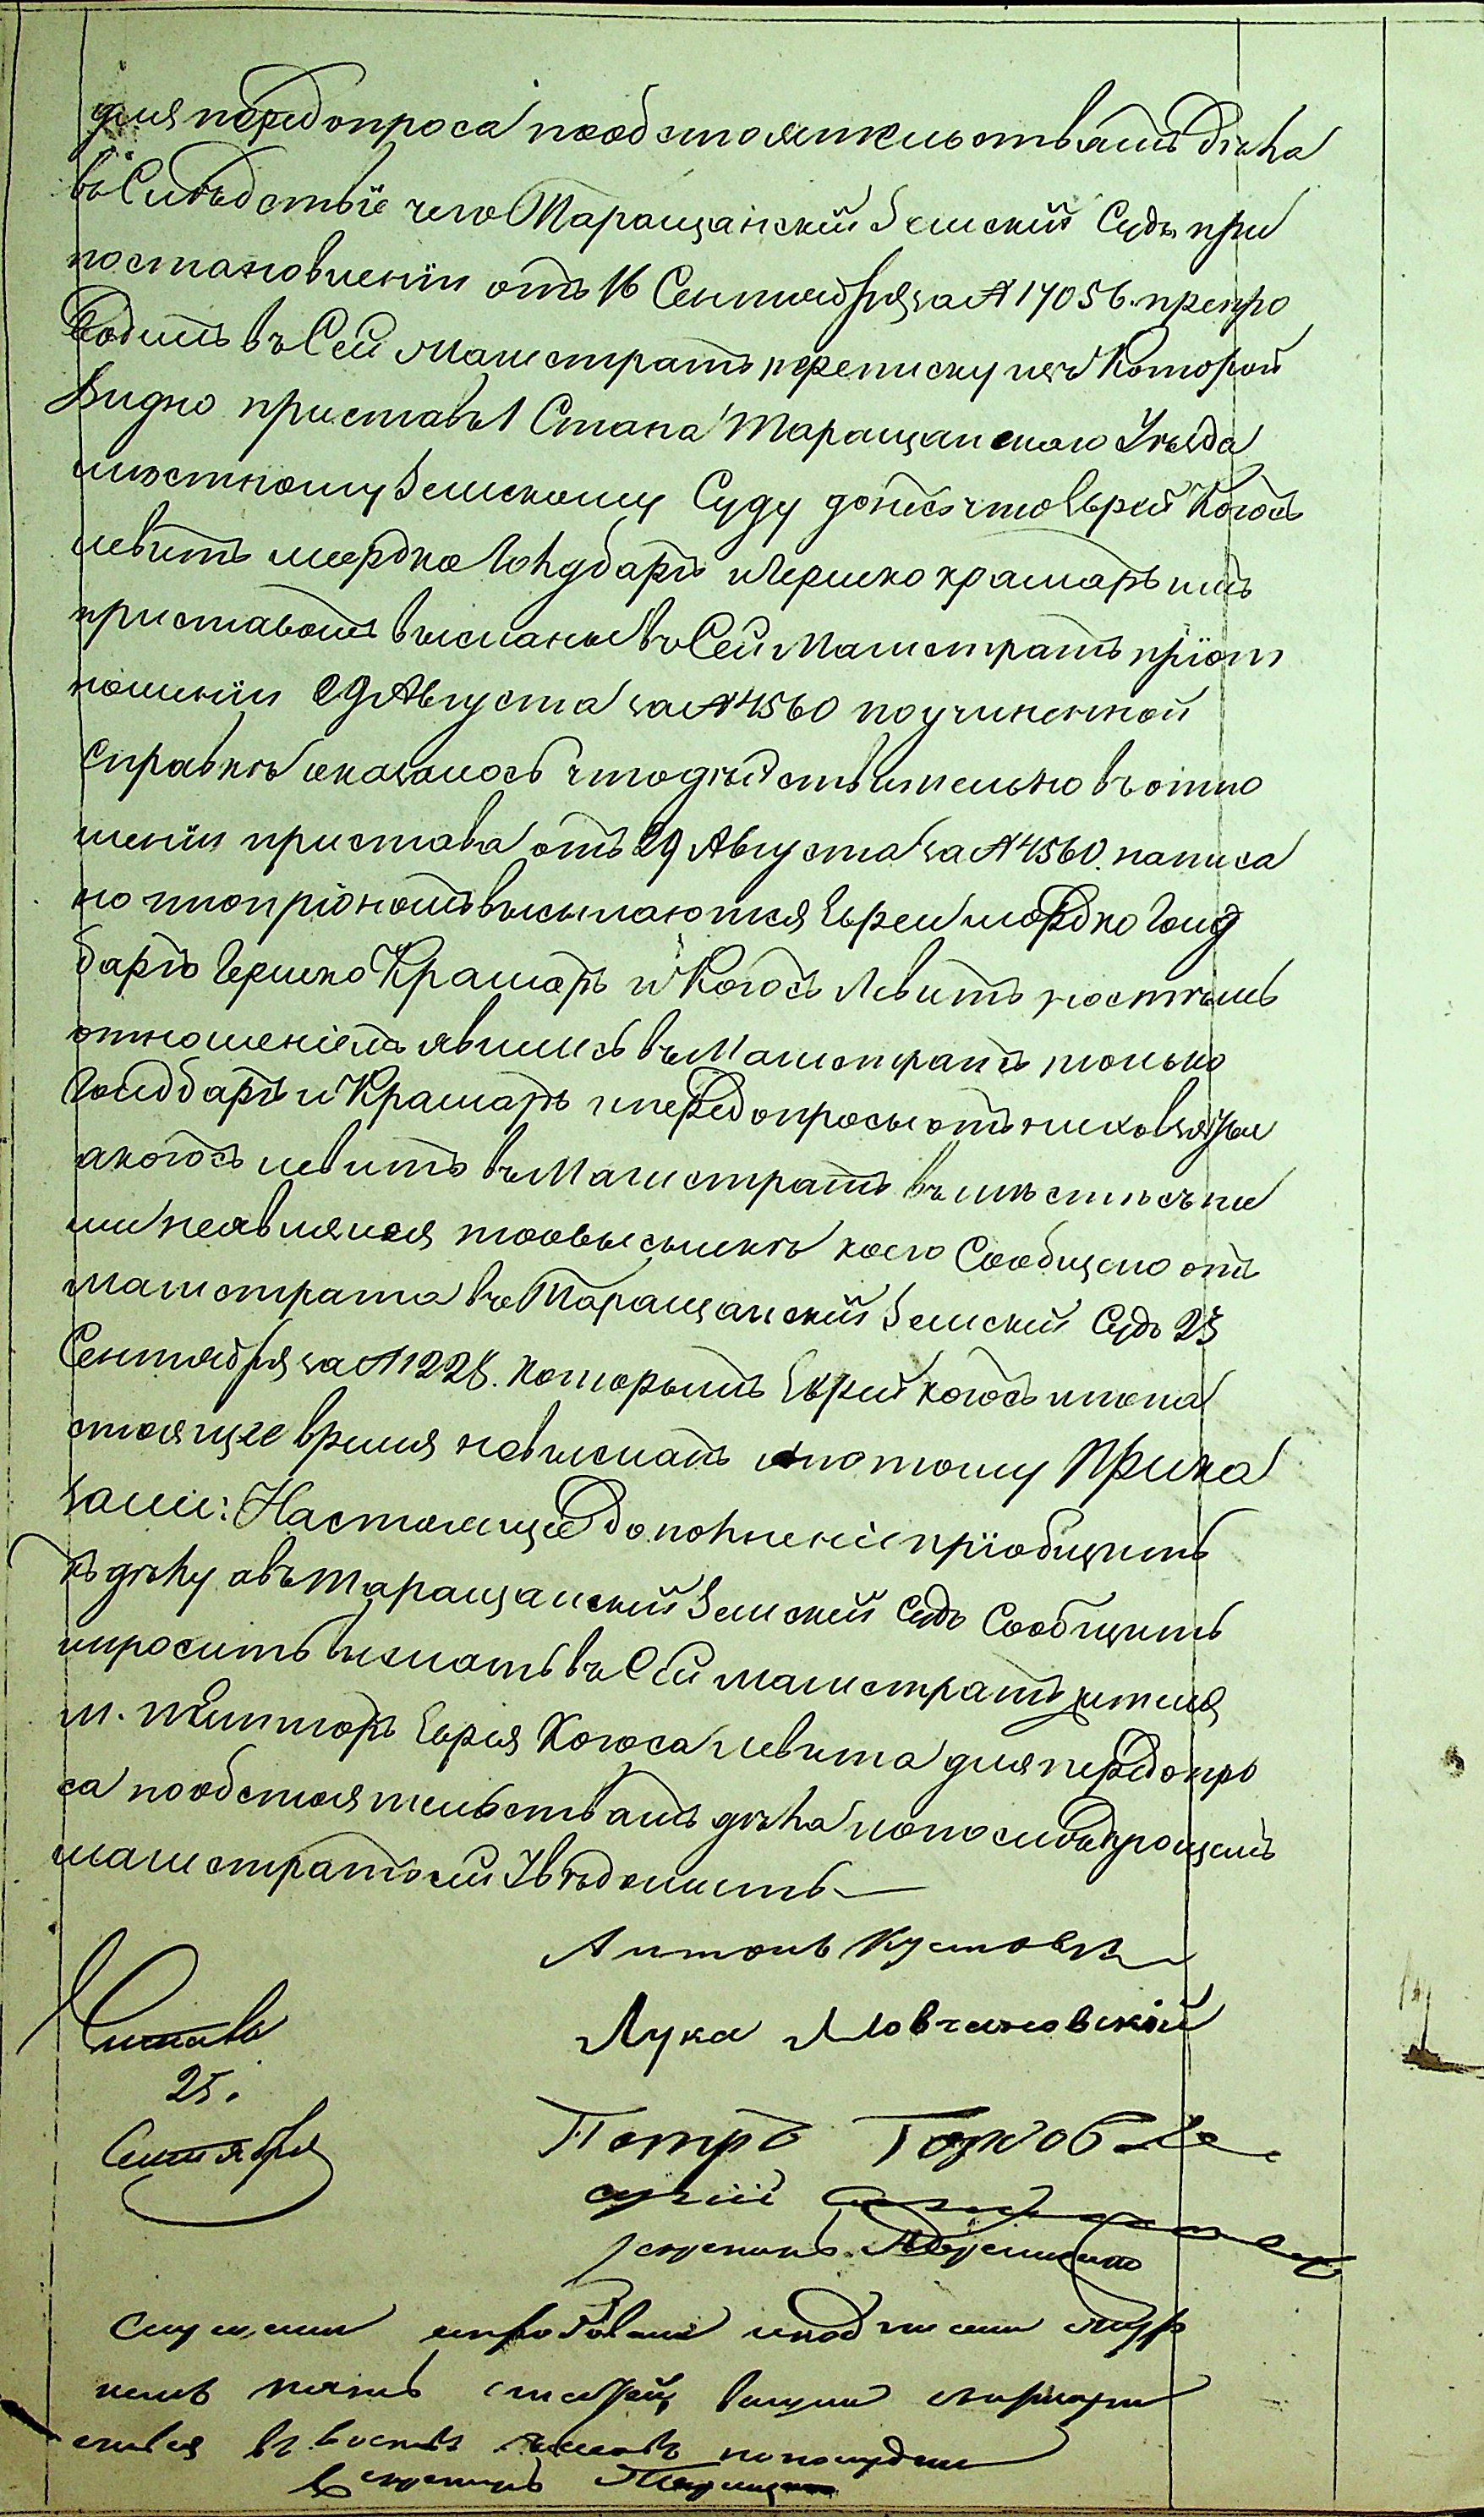 для передопроса пообстоятельствамъ дѣла
въ Слѣдствіе чего Таращанскій Земскій Судъ при
постановленіи отъ 16 Сентября за № 17056. препро
водилъ въ Сей Магистратъ переписку изъ Которой
видно приставъ 1 Стана Таращанскаго Уѣзда
мѣстному Земскому Суду донёсъ что Еврей Когосъ
левитъ мордко Гольдбаръ игершко крамаръ имъ
приставомъ высланы въ Сей Магистратъ приот
ношеніи 29 Августа за № 4560 поучиненной
справкѣ оказалось что дѣйствительно въ отно
шеніи пристава отъ 29 Августа за № 4560. написа
но что приономъ высылаются Евреи мордко Голд
баръ Гершко Крамаръ и Когосъ Левитъ но стѣмъ
отношеніемъ явились въ Магистратъ только
Голдбаръ и Крамаръ и передопросы отъ нихъ взяты
акогосъ левитъ въ Магистратъ вмѣстѣ съ ни
ми неявлялся то овысылкѣ коего Сообщено отъ
магистрата въ Таращанскій Земскій Судъ 23
Сентября за № 1228. которымъ Еврей когосъ и пона
стоящее время невысланъ и потому Прика
зали: Настоящее дополненіе пріобщить
къ дѣлу а въ Таращанскій Земскій Судъ Сообщить
ипросить выслать въ Сей магистратъ жителя
м. Еврея Когоса левита для передопро
са пообстоятельствамъ дѣла ипопослѣдующемъ
магистратъ сей Увѣдомить
Антонъ
Лука Мовчановскій
Читалъ
25.
Сентября
Петръ